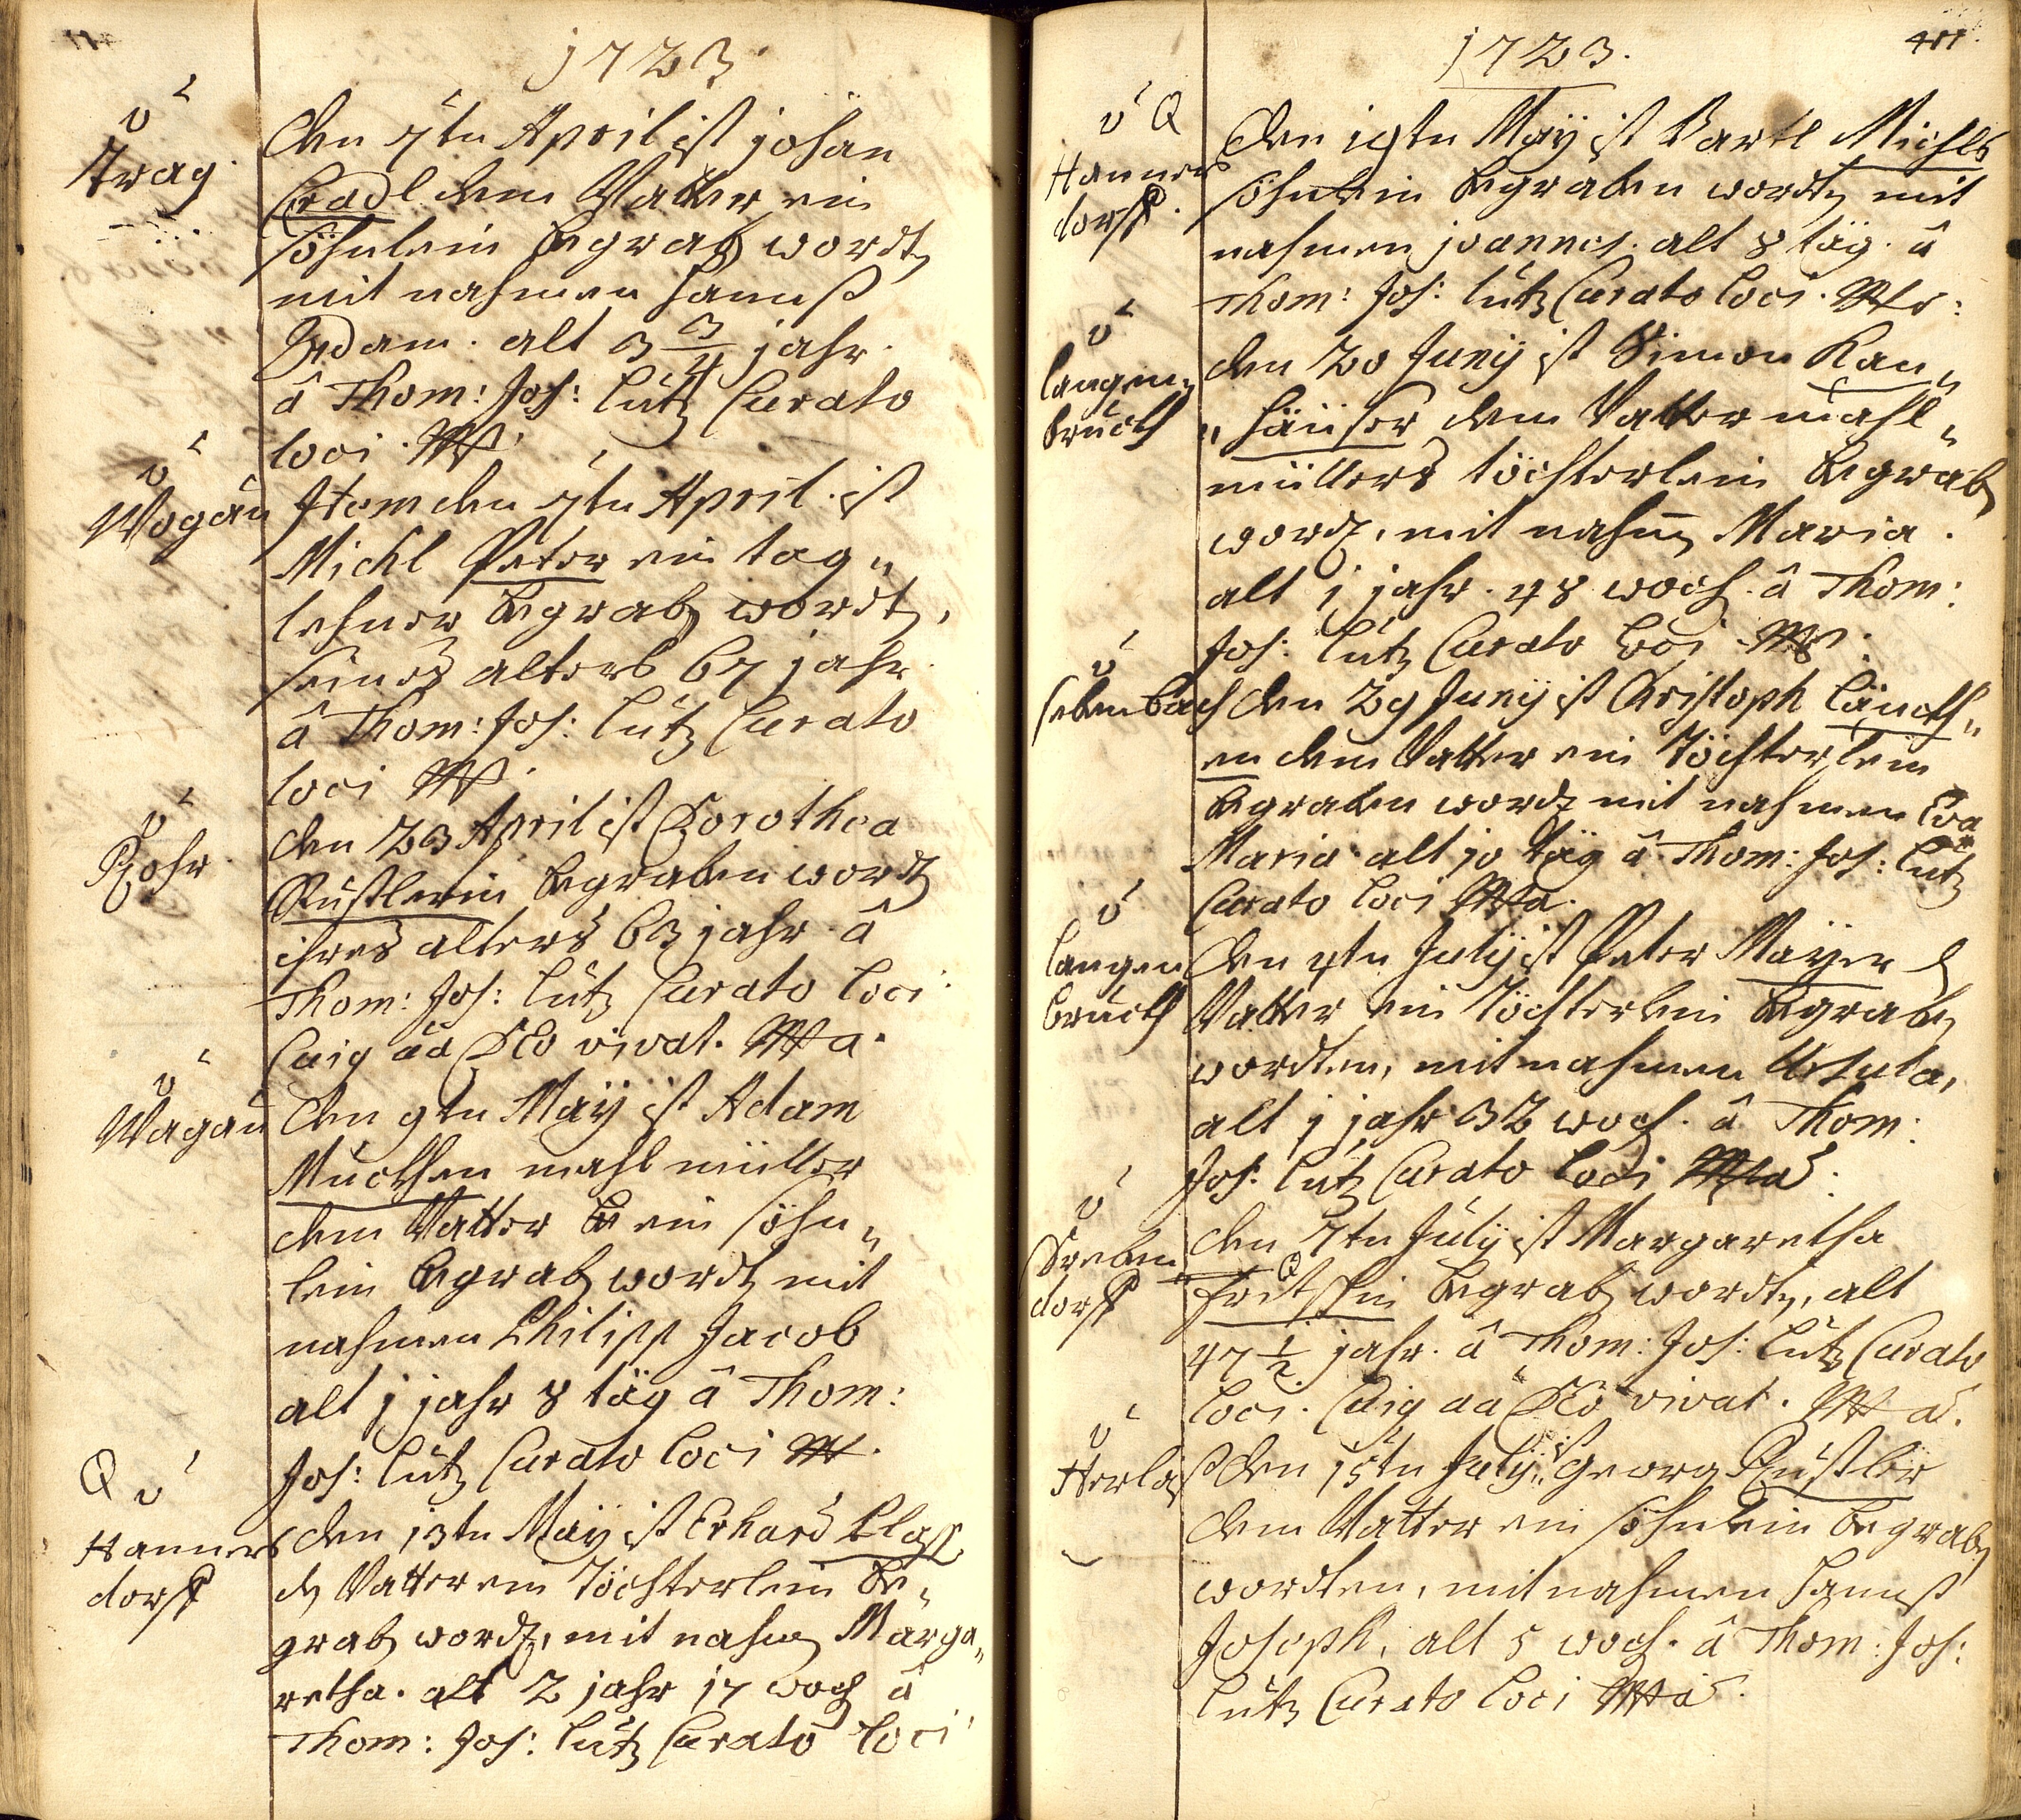 1723.
Trag.
den 7ten April ist johan
Cradl dem Vatter ein
söhnlein begrab wordt
mit nahmen hannß
Adam. alt 3 3/4 jahr.
â Thom: Jos: Lutz Curato
loci.
Wogau
Item den 7ten April. ist
Michl Peter ein tag„
lehner begrab wordt,
seines alters 67 jahr
â Thom: Jos: Lutz Curato
loci
Rohr.
den 23 April ist Dorothea
Rustlerin begraben wordt
ihres alters 63 jahr. â
Thom: Jos: Lutz Curato loci.
Cuiq DEo vivat.
Wagau
den 9ten Maÿ ist Adam
Muckhen mahl müller
dem Vatter ein söhn„
lein begrab wordt mit
nahmen Philipp Jacob
alt j jahr 8 täg â Thom:
Jos: Lutz Curato loci
Hanners
dorff
den 13ten Maÿ ist Erhard Class
Vatter ein Töchterlein be„
grab wordt, mit nahm Marga„
retha. alt 2 jahr 17 woch â
Thom: Jos: Lutz Curato loci
1723.
411
Hanners
dorff.
den 19ten Maÿ ist Bartl Michls
söhnlein begraben wordt mit
nahmen joannes. alt 8 täg. â
Thom: Jos: Lutz Curato loci.
Langen„
bruckh
den 20 Junÿ ist Simon Ran„
„häußer dem Vatter mahl„
müllers töchterlein begrab
wordt, mit nahm Maria.
alt j jahr. 48 woch. â Thom:
Jos: Lutz Curato loci
selenbach
den 29 Junÿ ist Christoph Länckh„
en dem Vatter ein Töchterlein
begraben wordt mit nahmen Eva
Maria alt jo täg â Thom: Jos: Lutz
Curato loci
Langen
bruckh
den 4ten Julÿ ist Peter Maÿer
Vatter ein Töchterlein begrab
wordten, mit nahmen Ursula,
alt j jahr 32 woch. â Thom:
Jos: Lutz Curato loci
dorff
den 7ten Julÿ ist Margaretha
begrab wordt, alt
47 1/2 jahr. â Thom: Jos: Lutz Curato
loci. Cuiq DEo vivat.
Herlaß
den 15ten Julÿ ist Georg Rustler
dem Vatter ein söhnlein begrab
wordten, mit nahmen hannß
Joseph, alt 5 woch. â Thom: Jos:
Lutz Curato loci